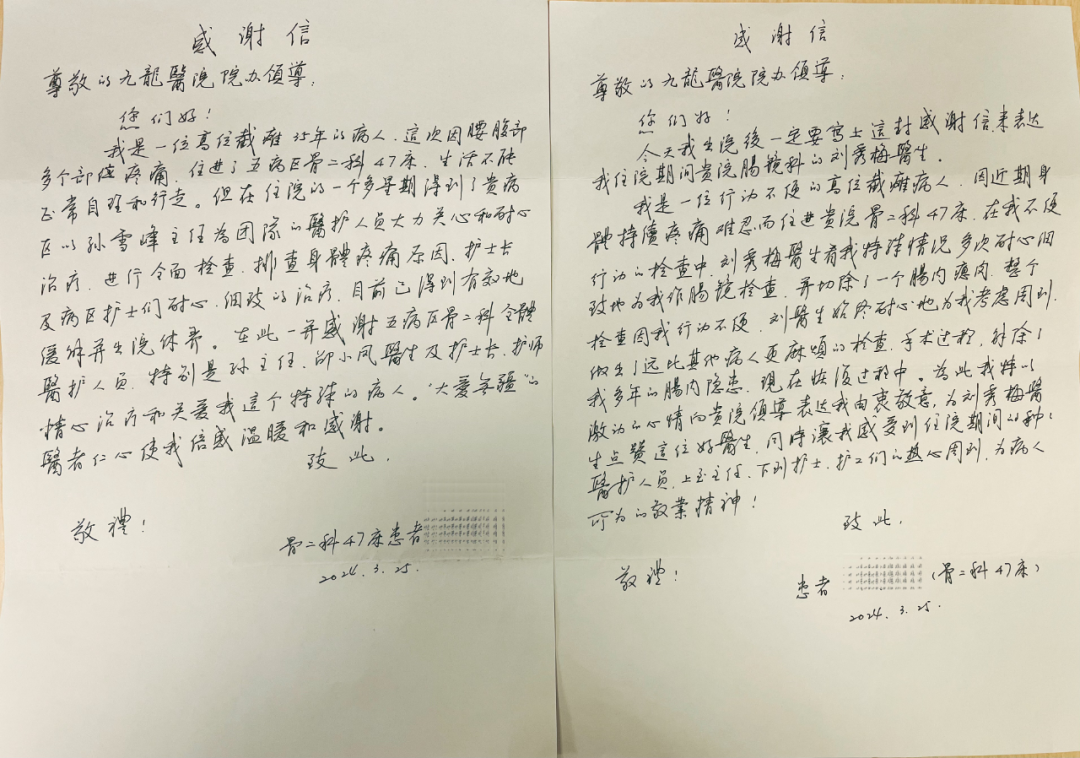 感谢信
尊敬的九龍醫院院办領導，
您们好！
我是一位高位截癱35年的病人，這次因腰腹部
多个部位疼痛，住進了五病区骨二科47床，生活不能
正常自理和行走。但在住院的一个多星期得到了贵病
区以孙雪峰主任為团隊的醫护人员大力关心和耐心
治疗，進行全面检查，排查身體疼痛原因，护士长
及病区护士们耐心、细致的治疗，目前已得到有效地
缓解并出院休养。在此一并感谢五病区骨二科全體
醫护人员，特别是孙主任，邵小凤醫生及护士长，护师
精心治疗和关爱我這个特殊的病人。“大爱無疆”的
醫者仁心使我倍感温暖和感谢。
致此，
敬禮！
骨二科47床患者
2024.3.25.
感谢信
尊敬的九龍醫院院办領導，
您们好！
今天我出院後一定要寫上這封感谢信来表达
我住院期间贵院腸镜科的刘秀梅醫生。
我是一位行动不便的高位截癱病人，因近期身
體持續疼痛难忍而住進贵院骨二科47床，在我不便
行动的检查中，刘秀梅醫生看我特殊情况多次耐心细
致地为我作腸镜检查，并切除了一个腸内瘜肉，整个
检查因我行动不便，刘醫生始终耐心地为我考虑周到，
做出了远比其他病人更麻烦的检查，手术过程，解除了
我多年的腸内隐患，现在恢復过程中。為此我特以
激动的心情向贵院領導表达我由衷敬意，为刘秀梅醫
生点赞這位好醫生，同時讓我感受到住院期间的种种
醫护人员，上至主任，下到护士，护工们的热心周到，为病人
所为的敬業精神！
致此，
敬禮！
患者 （骨二科47床）
2024.3.25.